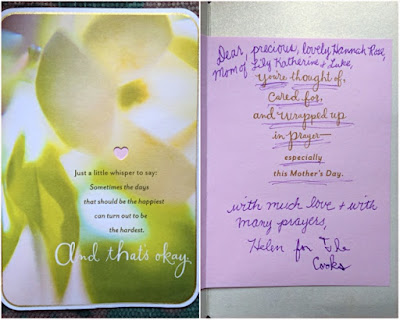 Just a little whisper to say:
Sometimes the days
that should be the happiest
can turn out to be
the hardest.
And that's okay.
Dear, precious, lovely Hannah Rose,
Mom of Lily Katherine & Luke,
You're thought of,
cared for,
and wrapped up
in prayer—
especially
this Mother's Day.
with much love + with
many prayers,
Helen for The
Cooks